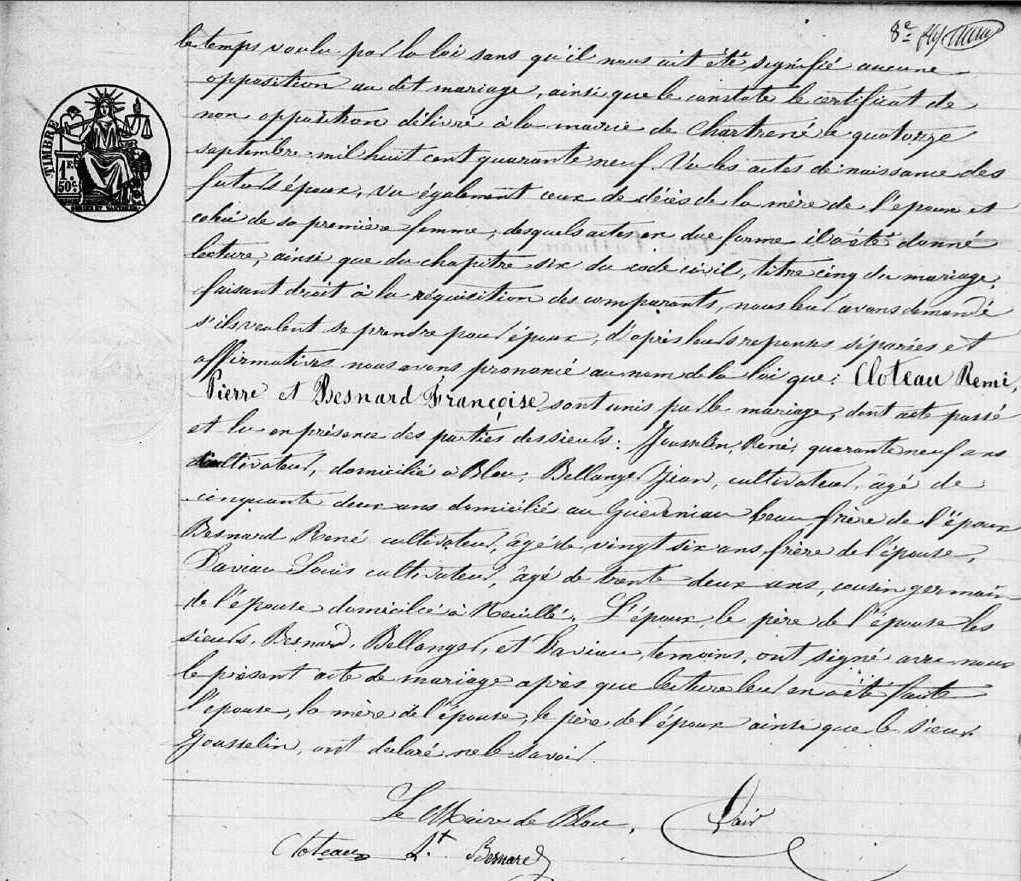 8e
le temps voulu par la loi sans qu'il nous ait été signifié aucune
opposition au dit mariage, ainsi que le constate le certificat de
non opposition délivré à la mairie de Chartrené le quatorze
septembre mil huit cent quarante neuf. Vu les actes de naissance des
futurs époux, vu également ceux de décès de la mère de l'époux et
celui de sa première femme, desquels actes en due forme il a été donné
lecture, ainsi que du chapitre six du code civil, titre cinq du mariage,
faisant droit à la réquisition des comparants, nous leur avons demandé
s'ils veulent se prendre pour époux, d'après leurs reponses séparées et
affirmatives nous avons prononcé au nom de la loi que: Cloteau Remi,
Pierre et Besnard Françoise sont unis par le mariage, dont acte passé
et lu en présence des parties des sieurs: Jousselin, René, quarante neuf ans
cultivateur, domicilié à Blou, Bellanger Jean, cultivateur, âgé de
cinquante deux ans domicilié au Guédeniau beau frère de l'époux
Besnard René cultivateur, âgé de vingt six ans frère de l'épouse,
Daviau Louis cultivateur, âgé de trente deux ans, cousin germain
de l'épouse domicilié à Neuillé. L'époux, le père de l'épouse les
sieurs, Besnard, Bellanger, et Daviau, temoins, ont signé avec nous
le présent acte de mariage après que lecture leur en a été faite
l'epouse, la mère de l'épouse, le père de l'époux ainsi que le sieur
Jousselin, ont déclaré ne le savoir.
Le Maire de Blou,
Cloteau Besnard
TIMBRE
1F.
50C.